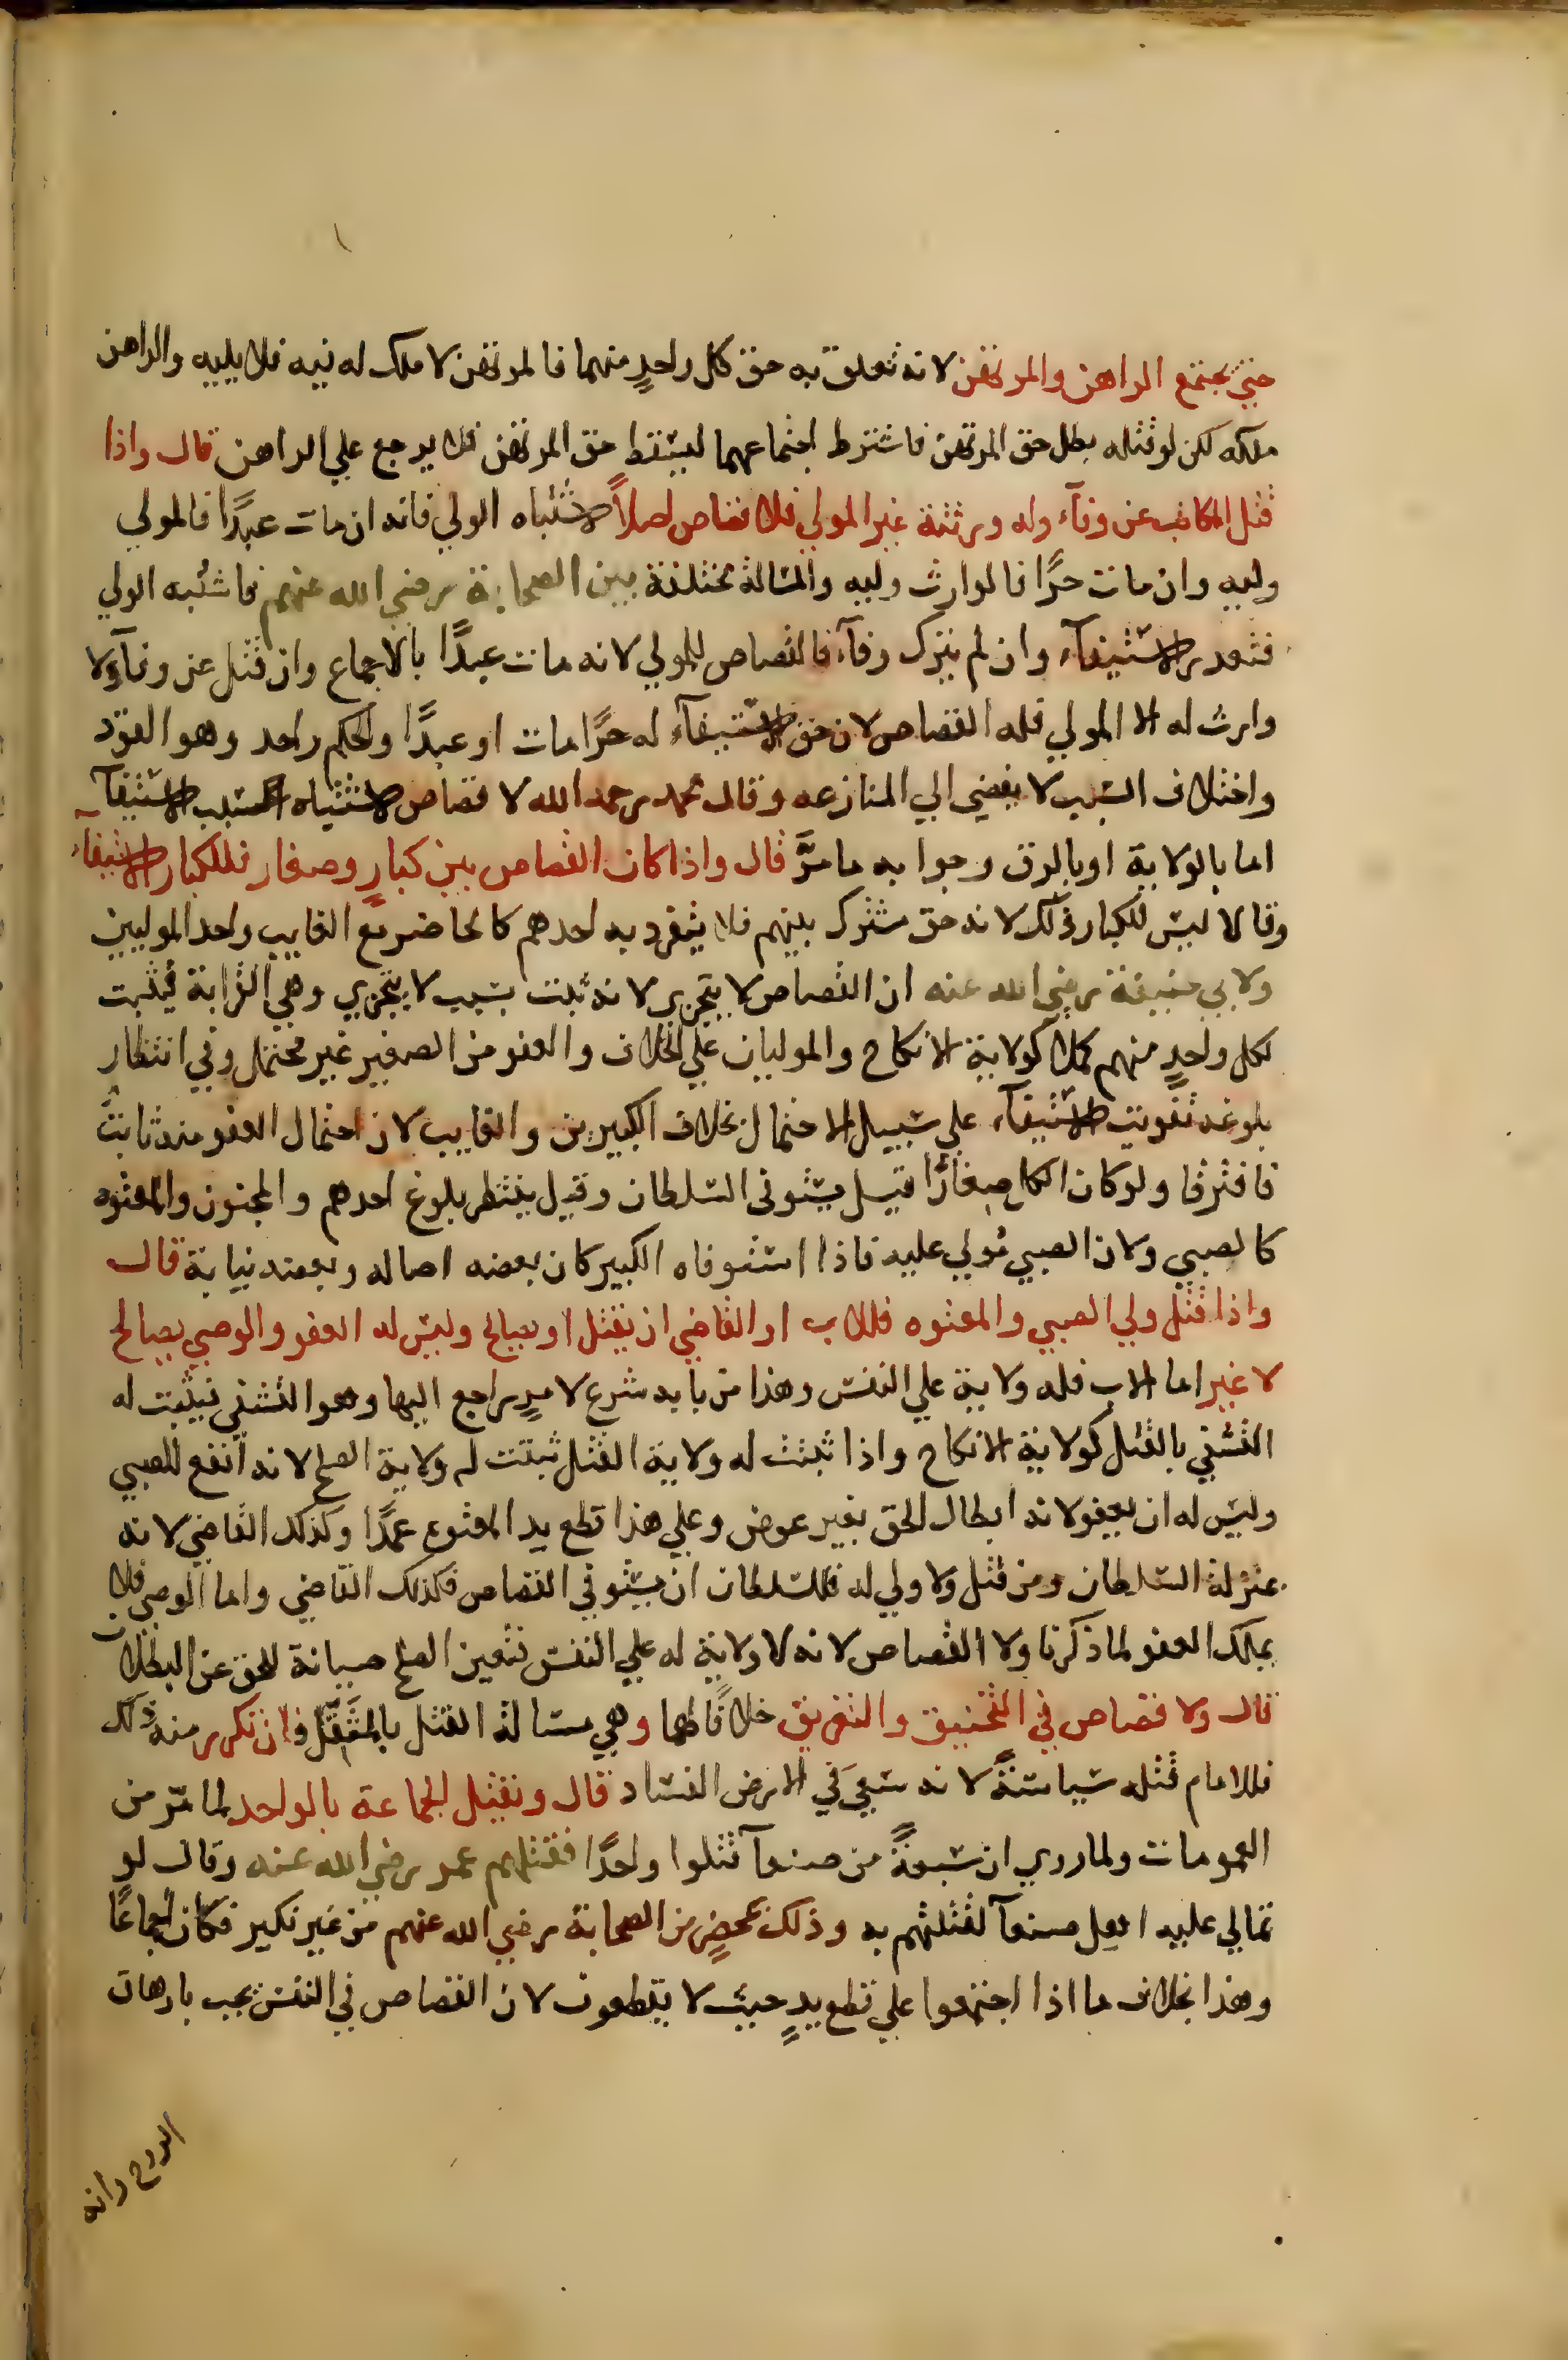 حتى يجتمع الراهن والمرتهن لانه تعلق به حق كل واحدٍ منهما فالمرتهن لا ملك له فيه فلا يليه والراهن
ملكه لكن لو قتله بطل حق المرتهن فاشترط اجتماعهما ليسقط حق المرتهن فلا يرجع علي الراهن قال واذا
قتل المكاتب عن وفآء وله ورثة غير المولي فلا قصاص اصلاً لاشتباه الولي فانه ان مات عبدًا فالمولي
وليه وان مات حرًا فالوارث وليه والمسالة مختلفة بين الصحابة رضي الله عنهم فاشتبه الولي
فتعدر الاستيفآء وان لم يترك وفآء فالقصاص للمولي لانه مات عبدًا بالاجماع وان قتل عن وفآء ولا
وارث له الا المولي فله القصاص لان حق الاستيفآء له حرًا مات او عبدًا والحكم واحد وهو القود
واختلاف السبب لا يفضي الي المنازعه وقال محمد رحمه الله لا قصاص لاشتباه السبب الاستيفآء
اما بالولاية او بالرق وجوابه ما مرَّ قال واذا كان القصاص بين كبارٍ وصغار فللكبار الاستيفآء
وقالا ليس للكبار ذلك لانه حق مشترك بينهم فلا ينفرد به احدهم كالحاضر مع الغايب واحد الموليين
ولابي حنيفة رضي الله عنه ان القصاص لا يتجزي لانه ثبت بسبب لا يتجزي وهي القرابة فيثبت
لكل واحدٍ منهم كملا كولاية الانكاح والموليان علي الخلاف والعفو من الصغير غير محتمل وفي انتظار
بلوغه تفويت الاستيفآء علي سبيل الاحتمال بخلاف الكبيرين والغايب لان احتمال العفو منه ثابتٌ
فافترقا ولو كان الكل صغارًا قيل يستوفي السلطان وقيل ينتظر بلوغ احدهم والمجنون والمعتوه
كالصبي ولان الصبي مُولي عليه فاذا استوفاه الكبير كان بعضه اصاله وبعضه نيابة قال
واذا قتل ولي الصبي والمعتوه فللاب او القاضي ان يقتل او يصالح وليس له العفو والوصي يصالح
لا غير اما الاب فله ولاية علي النفس وهذا من بابه شرع لامرٍ راجع اليها وهو التشفي فيثبت له
التشفي بالقتل كولاية الانكاح واذا ثبتت له ولاية القتل ثبتت له ولاية الصلح لانه انفع للصبي
وليس له ان يعفو لانه ابطال الحق بغير عوض وعلي هذا قطع يد المعتوع عمدًا وكذلك القاضي لانه
بمنزلة السلطان ومن قتل ولا ولي له فللسلطان ان يستوفي القصاص فكذلك القاضي واما الوصي فلا
يملك العفو لما ذكرنا ولا القصاص لانه لا ولاية له علي النفس فتعين الصلح صيانة للحق عن البطلان
قال ولا قصاص في التخنيق والتغريق خلافًا لهما وهي مسالة القتل بالمثقَّل فان تكرر منه ذلك
فللامام قتله سياسةً لانه سَعيَ في الارض الفساد قال ونقتل الجماعة بالواحد لما مرّ من
العمومات ولما روي ان سبعةً من صنعآ قتلوا واحدًا فقتلهم عمر رضي الله عنه وقال لو
تمالي عليه اهل صنعآ لقتلتهم به وذلك بمحضرٍ من الصحابة رضي الله عنهم من غير نكير فكان اجماعًا
وهذا بخلاف ما اذا اجتمعوا علي قطع يدٍ حيث لا يقطعون لان القصاص في النفس يجب بازهاق
الروح وانه